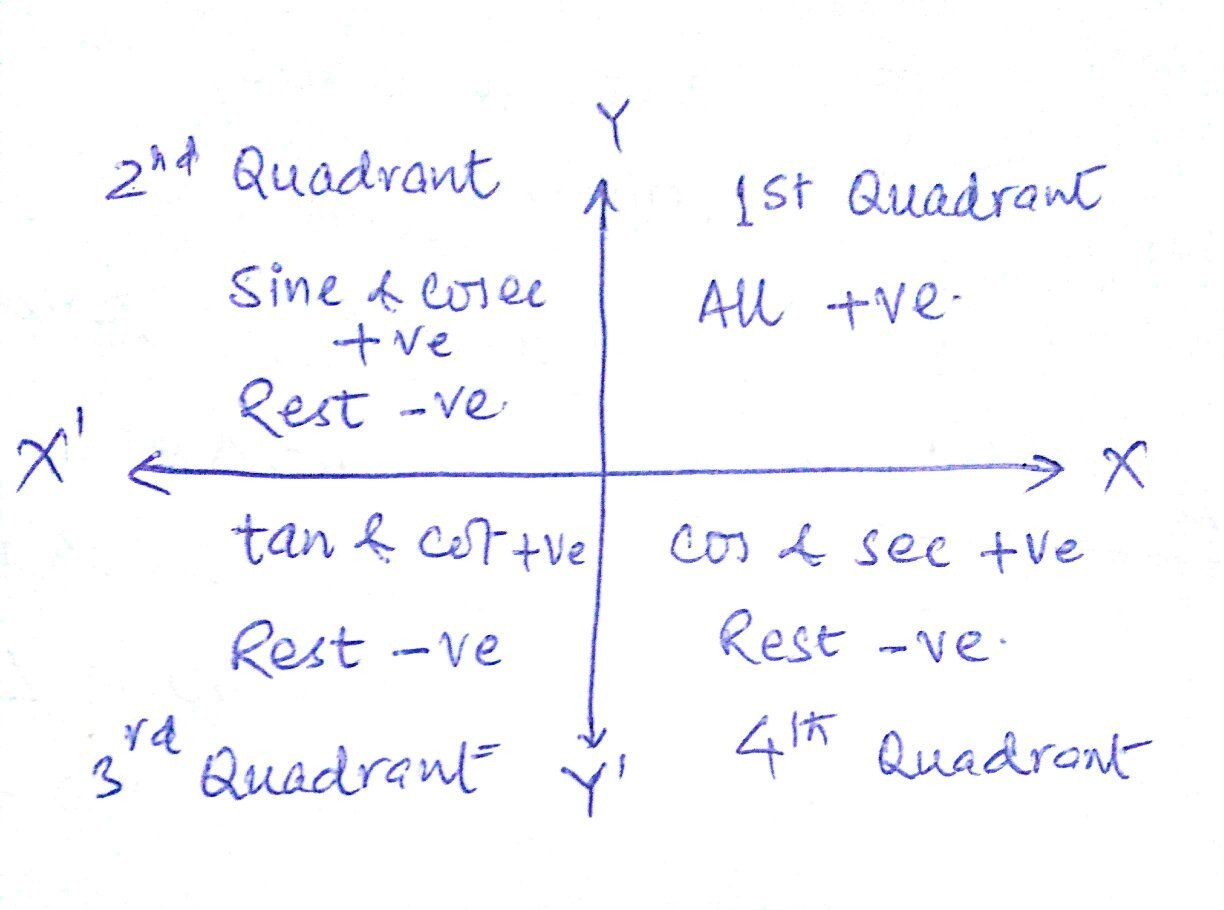 Y
2nd Quadrant
Sine & cosec
+ve
Rest -ve.
1st Quadrant
All +ve.
X'
X
tan & cot +ve
Rest -ve
3rd Quadrant
cos & sec +ve
Rest -ve.
4th Quadrant
Y'